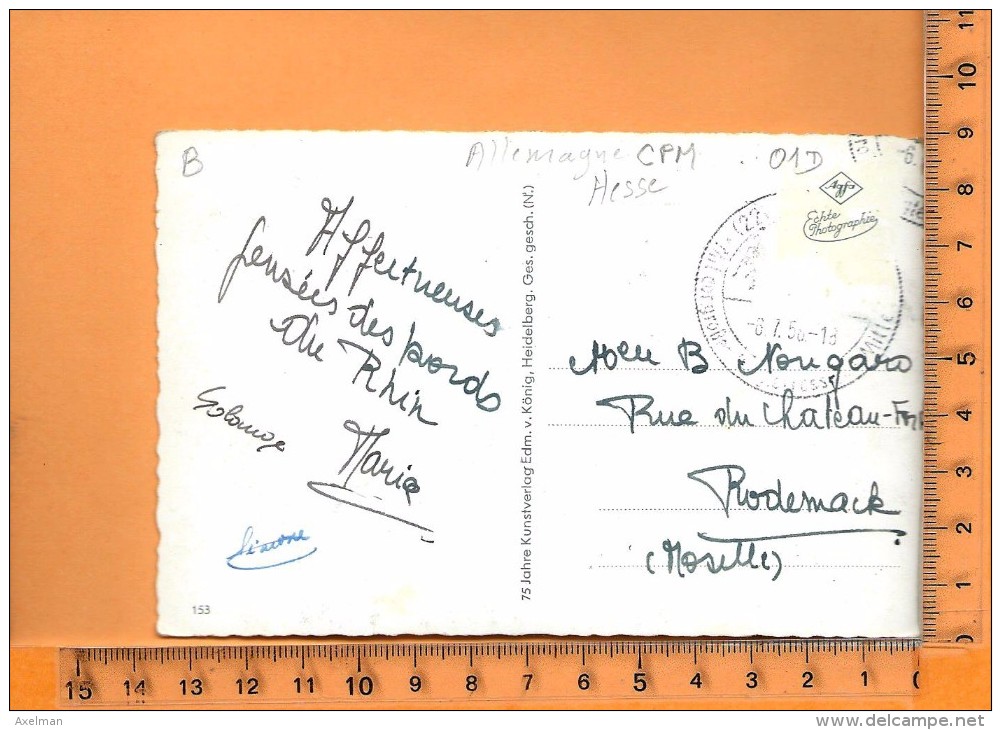 B
Allemagne CPM
Hesse
01D
Agfa
Echte
Photographie
-6.7.56-18
Affectueuses
pensées des bords
du Rhin
Solange
Maria
Simone
153
75 Jahre Kunstverlag Edm. v. König, Heidelberg. Ges. gesch. (N.)
B Nougaro
Rue du Chateau-
Rodemack
(Moselle)
11
10
9
8
7
6
5
4
3
2
1
0
15 14 13 12 11 10 9 8 7 6 5 4 3 2 1 0
Axelman
delcampe.net